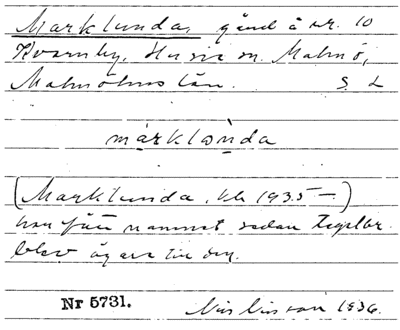 Marklunda, gård å nr. 10
Kvarnby, Husie sn. Malmö,
Malmöhus län. S. L
märklunda
(Marklunda, kb 1935 —)
han fått namnet sedan
blev ägare till den.
Nr 5731. Nils Nilsson 1936.